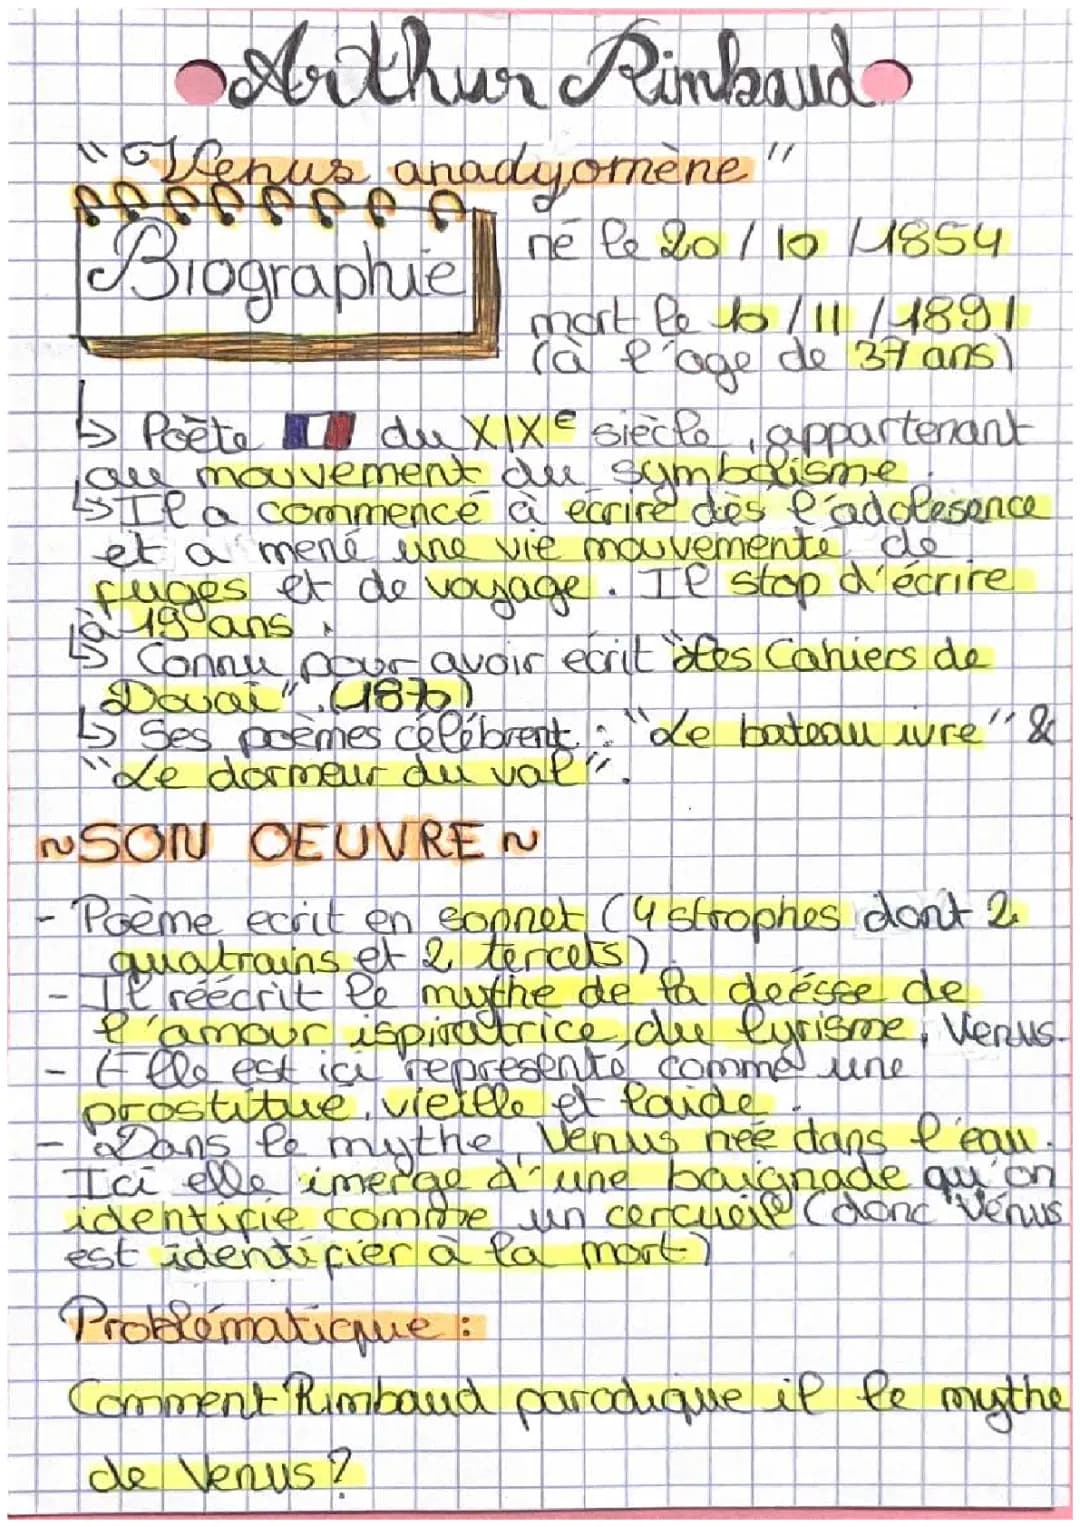 Arthur Rimbaud
"Venus anadyomène"
Biographie
né le 20/10/1854
mort le 10/11/1891
(à l'age de 37 ans)
↳ Poête du XIXe siècle, appartenant
au mouvement du symbolisme.
↳ Il a commencé à écrire dès l'adolesence
et a mené une vie mouvementé de
fuges et de voyage. Il stop d'écrire
à 19 ans.
↳ Connu pour avoir ecrit "Les Cahiers de
Douai". (1870)
↳ Ses poèmes célébrent : "Le bateau ivre" &
"Le dormeur du val".
~SON OEUVRE~
- Poème ecrit en sonnet (4 strophes dont 2
quatrains et 2 tercets).
- Il réécrit le mythe de la déésse de
l'amour ispiratrice du lyrisme, Venus.
- Elle est ici représenté comme une
prostitue, vieille et laide.
- Dans le mythe, Venus née dans l'eau.
Ici elle imerge d'une baignade qu'on
identifie comme un cercueil (donc Vénus
est identifier à la mort)
Problématique :
Comment Rimbaud parodique il le mythe
de Venus ?